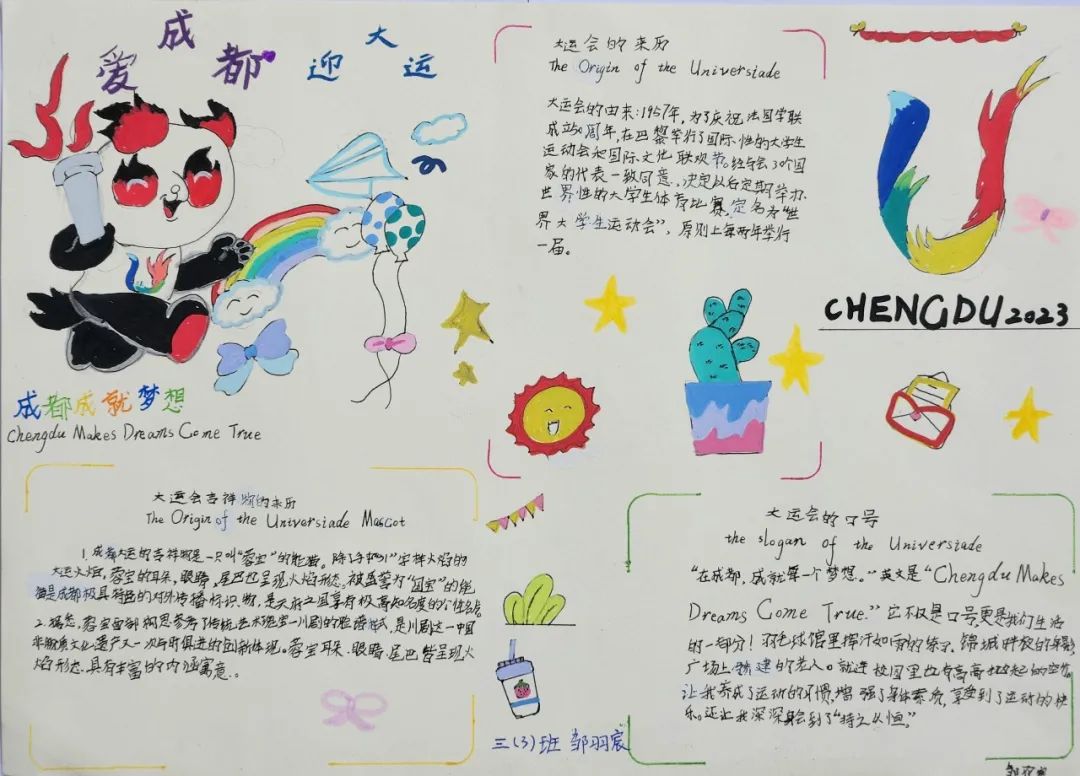 爱成都 迎大运
大运会的来历
The Origin of the Universiade
大运会的由来:1957年,为了庆祝法国学联
成立50周年,在巴黎举行了国际性的大学生
运动会和国际文化联欢节。经与会30个国
家的代表一致同意,决定以后定期举办
世界性的大学生体育比赛,定名为“世
界大学生运动会”,原则上每两年举行
一届。
CHENGDU2023
成都成就梦想
Chengdu Makes Dreams Come True
大运会吉祥物的来历
The Origin of the Universiade Mascot
1.成都大运的吉祥物是一只叫“蓉宝”的熊猫。除了手中“31”字样火焰的
大运火炬,蓉宝的耳朵,眼睛,尾巴也呈现火焰形态。
是成都极具特色的对外传播标识物,是天府之国享有极高知名度的个性名片
蓉宝面部构思参考了传统艺术瑰宝—川剧的脸谱样式,是川剧这一中国
非物质文化遗产又一次与时俱进的创新体现。蓉宝耳朵、眼睛、尾巴皆呈现火
焰形态,具有丰富的内涵寓意。
大运会的口号
the slogan of the Universiade
“在成都,成就每一个梦想。”英文是“Chengdu Makes
Dreams Come True.”它不仅是口号,更是我们生活
的一部分!羽毛球馆里挥汗如雨的练习、锦城
广场上健的老人。就连校园里也有高高
让我养成了运动的习惯,增强了身体素质,享受到了运动的快
乐。还让我深深体会到了“持之以恒”
三(3)班 邹羽宸